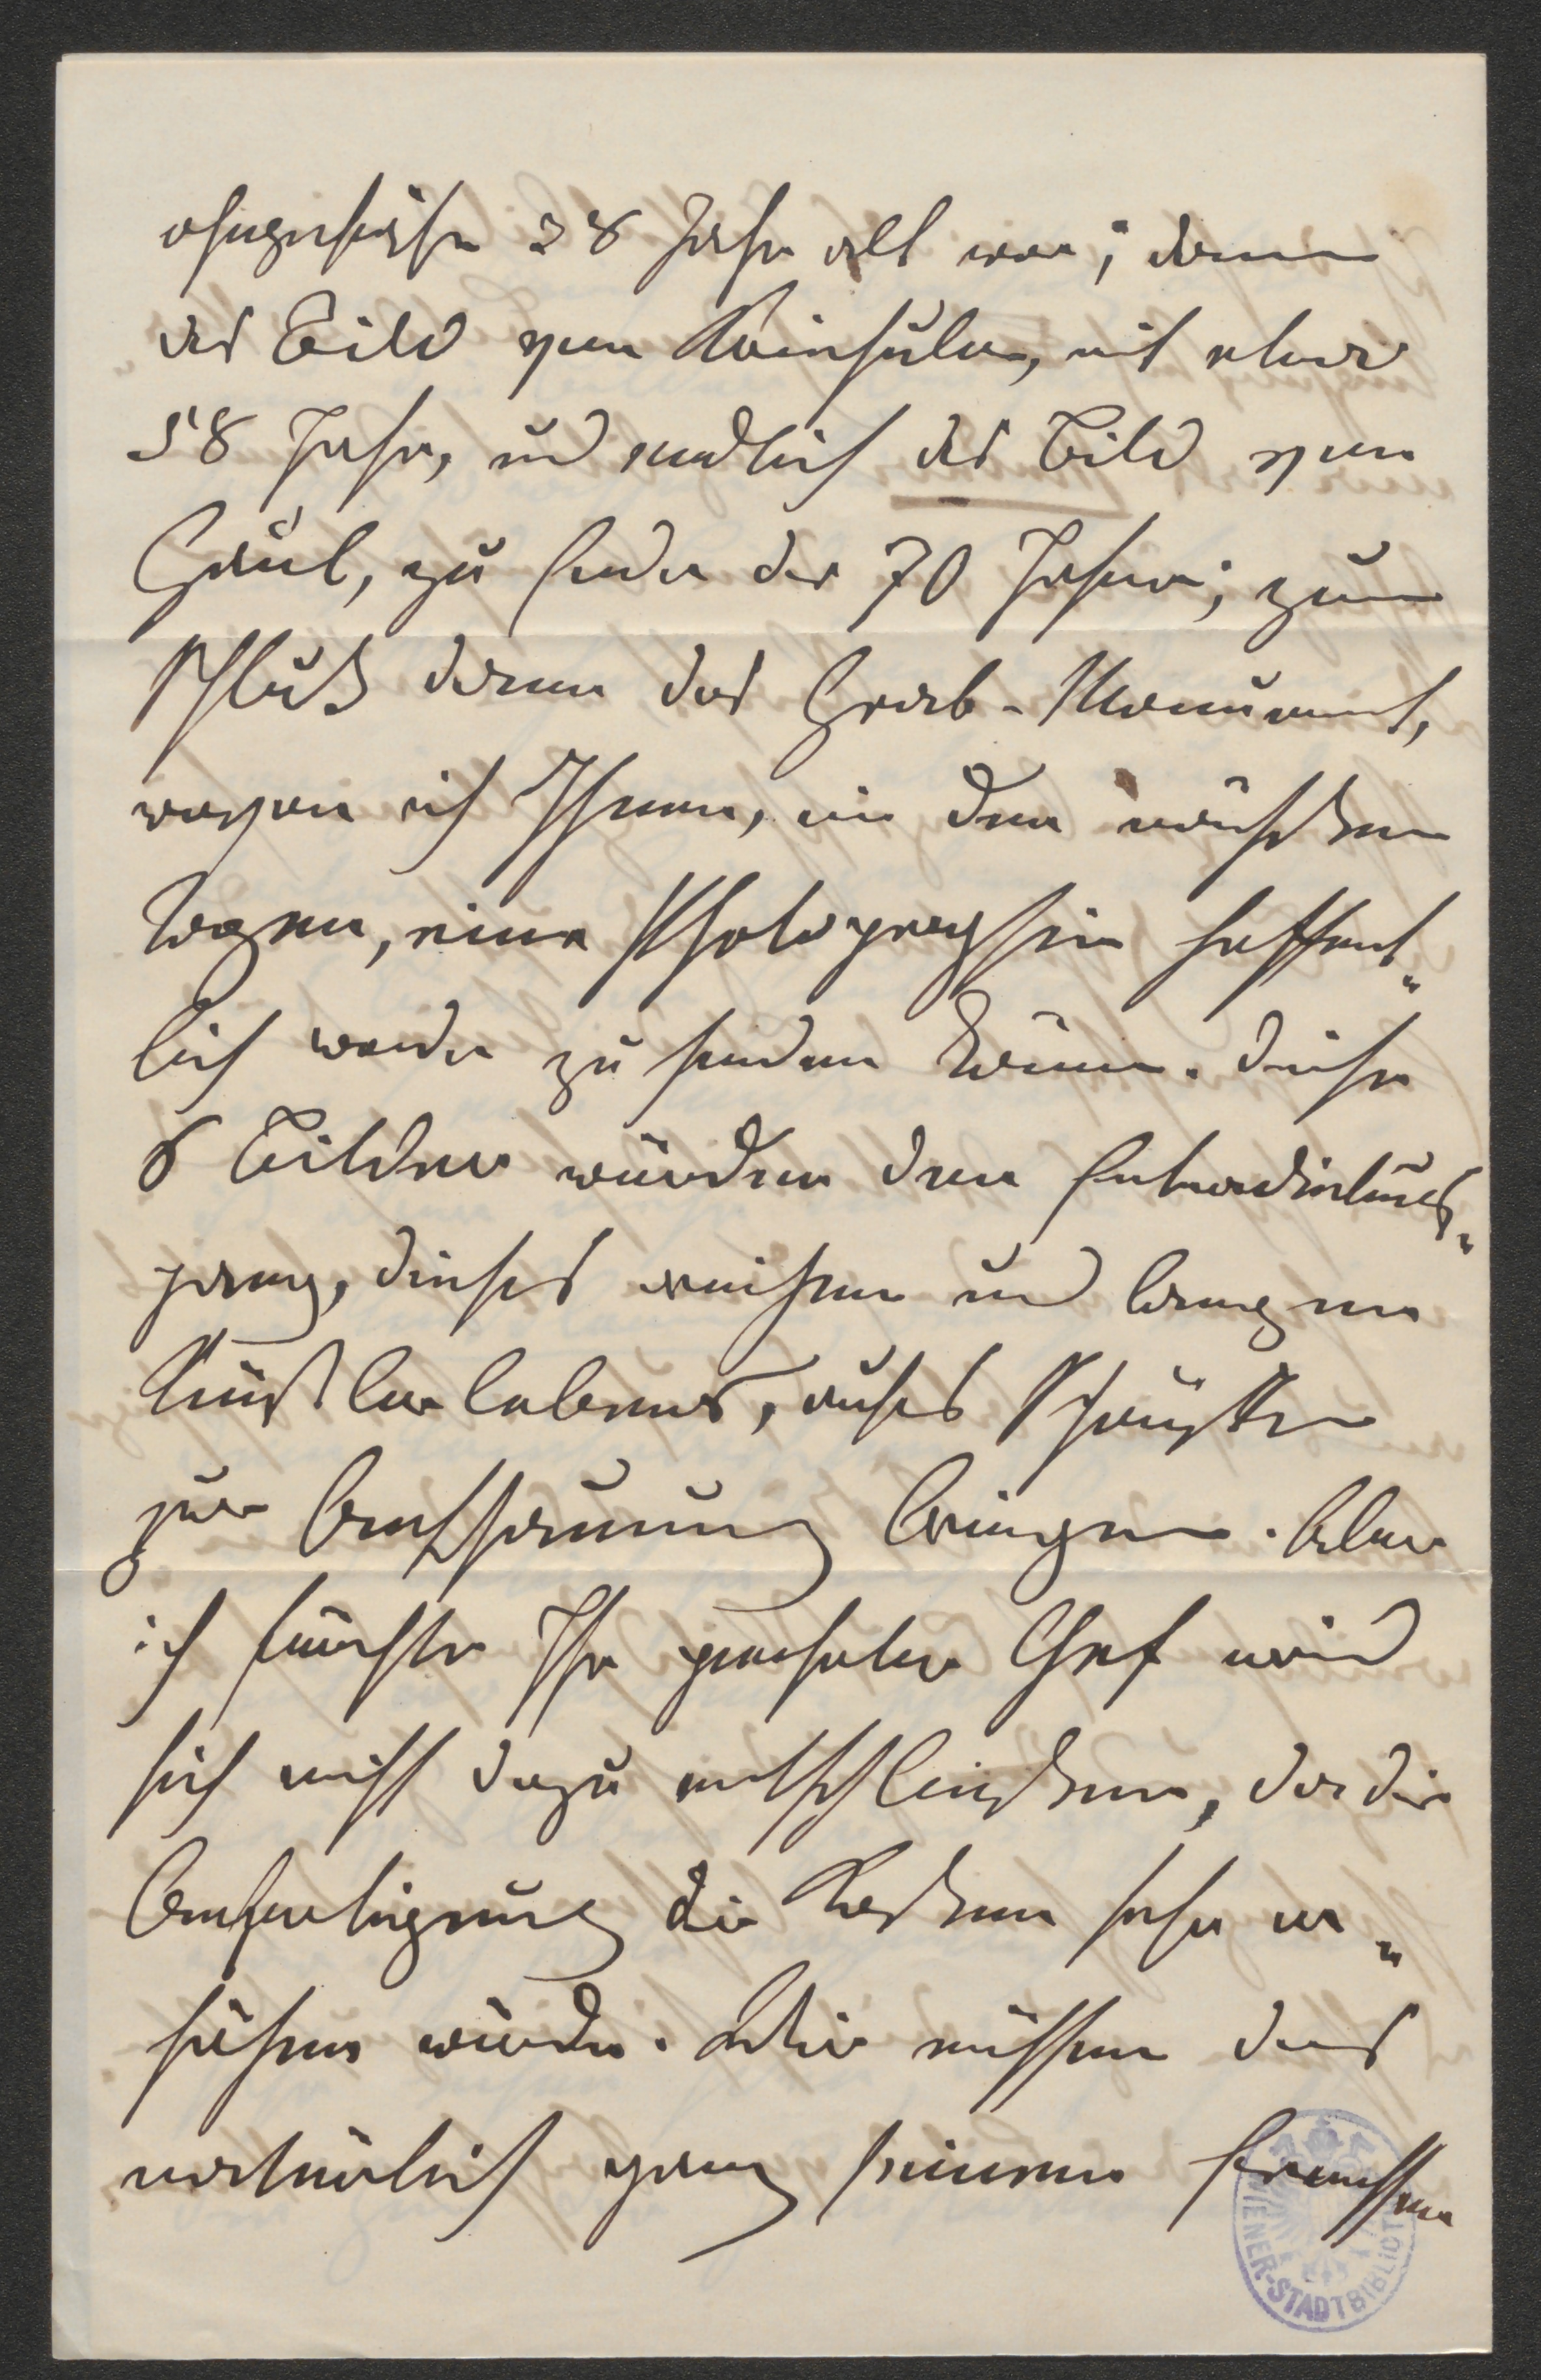 ohngefähr 38 Jahre alt war; dann
das Bild von Steinhäuser, mit etwa
58 Jahre, und endlich das Bild von
Gaul, zu Ende der 70 Jahre; zum
Schluß dann das Grab-Monument,
wovon ich Ihnen, in den nächsten
Tagen, eine Photographie hoffent„
lich werde zu senden können. Diese
6 Bilder würden den Entwicklungs„
gang, dieses reichen und langen
Künstlerlebens, aufs Schönste
zur Anschauung bringen. Aber
ich fürchte Ihr geehrter Chef wird
sich nicht dazu entschließen, da die
Anfertigung die Kosten sehr er„
höhen würde. Wir müssen das
natürlich ganz seinem Ermessen
WIENER-STADTBIBLIOT